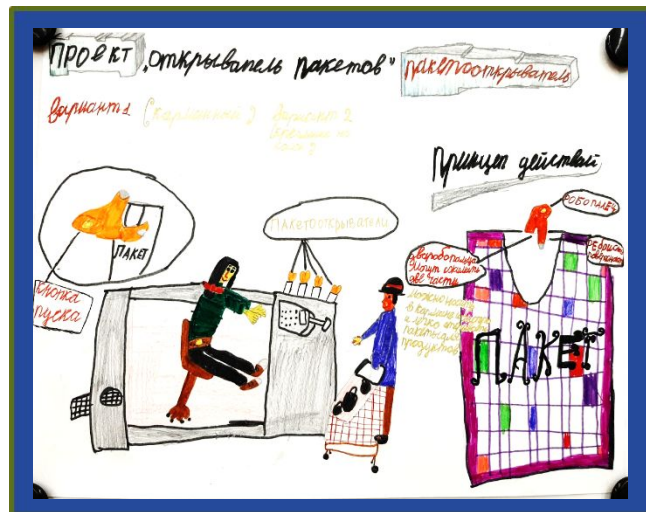 ПРОЕКТ „Открыватель пакетов"
пакетооткрыватель
Вариант 1 (карманный) Вариант 2
Принцип действия
РОБОПАЛЕЦ
ПАКЕТООТКРЫВАТЕЛИ
ПАКЕТ
Кнопка
пуска
два робопальца
могут сжимать
две части
можно носить
в кармане
и легко открывать
пакеты для
продуктов
ПАКЕТ